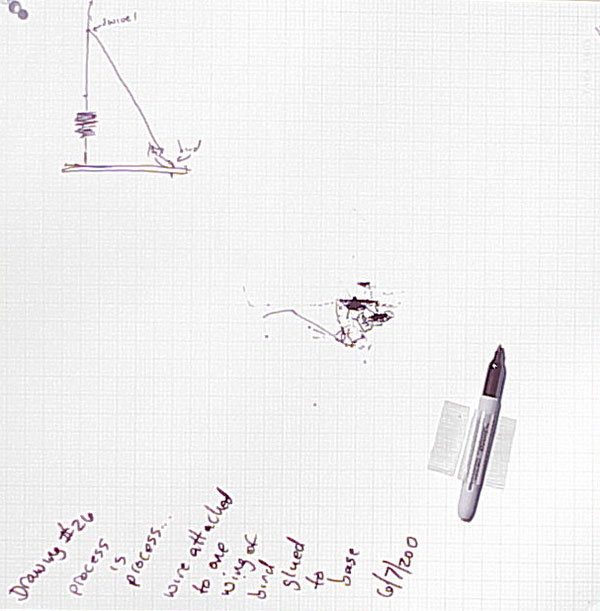 swivel
bird
Drawing #26
process
is
process...
wire attached
to one
wing of
bird
glued
to
base
6/7/200